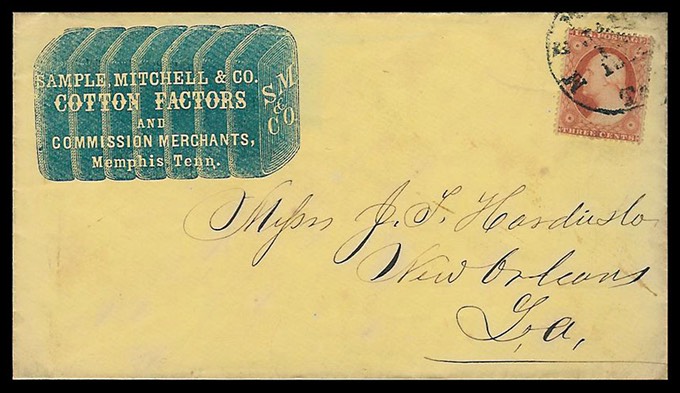 SAMPLE, MITCHELL & CO.
COTTON FACTORS
AND
COMMISSION MERCHANTS,
Memphis Tenn.
S.M
&
CO.
U.S. POSTAGE
THREE CENTS
Messrs J. F.
New Orleans
La,